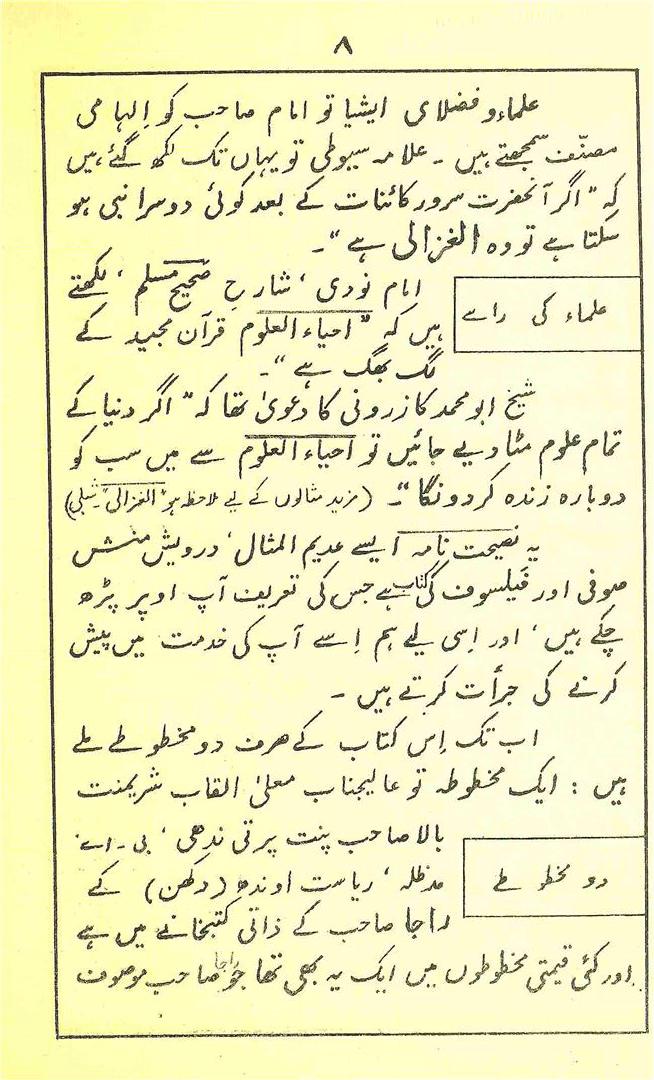 ۸
علماء و فضلای ایشیا تو امام صاحب کو اِلہامی
مصنّف سمجھتے ہیں ۔ علامہ سیوطی تو یہاں تک لکھ گئے ہیں
کہ "اگر آنحضرت سرورِ کائنات کے بعد کوئی دوسرا نبی ہو
سکتا ہے تو وہ الغزالی ہے"۔
علماء کی راے
امام نودی ، شارحِ صحیح مسلم ، لکھتے
ہیں کہ "احیاء العلوم قرآن مجید کے
لگ بھگ ہے"۔
شیخ ابو محمد کازرونی کا دعویٰ تھا کہ "اگر دنیا کے
تمام علوم مٹا دیے جائیں تو احیاء العلوم سے میں سب کو
دوبارہ زندہ کر دونگا"۔ (مزید مثالوں کے لیے ملاحظہ ہو "الغزالی"۔ شبلی)
یہ نصیحت نامہ ایسے عدیم المثال ، درویش منش
صوفی اور فیلسوف کی کتاب ہے جس کی تعریف آپ اوپر پڑھ
چکے ہیں ، اور اِسی لیے ہم اِسے آپ کی خدمت میں پیش
کرنے کی جرأت کرتے ہیں ۔
اب تک اِس کتاب کے صرف دو مخطوطے ملے
ہیں : ایک مخطوطہ تو عالیجناب معلیٰ القاب شریمنت
بالا صاحب پنت پرتی ندھی ، بی ۔ اے ،
دو مخطوطے
مدظلہ ، ریاست اوندھ (دکھن) کے
راجا صاحب کے ذاتی کتبخانے میں ہے
اور کئی قیمتی مخطوطوں میں ایک یہ بھی تھا جو راجا صاحب موصوف